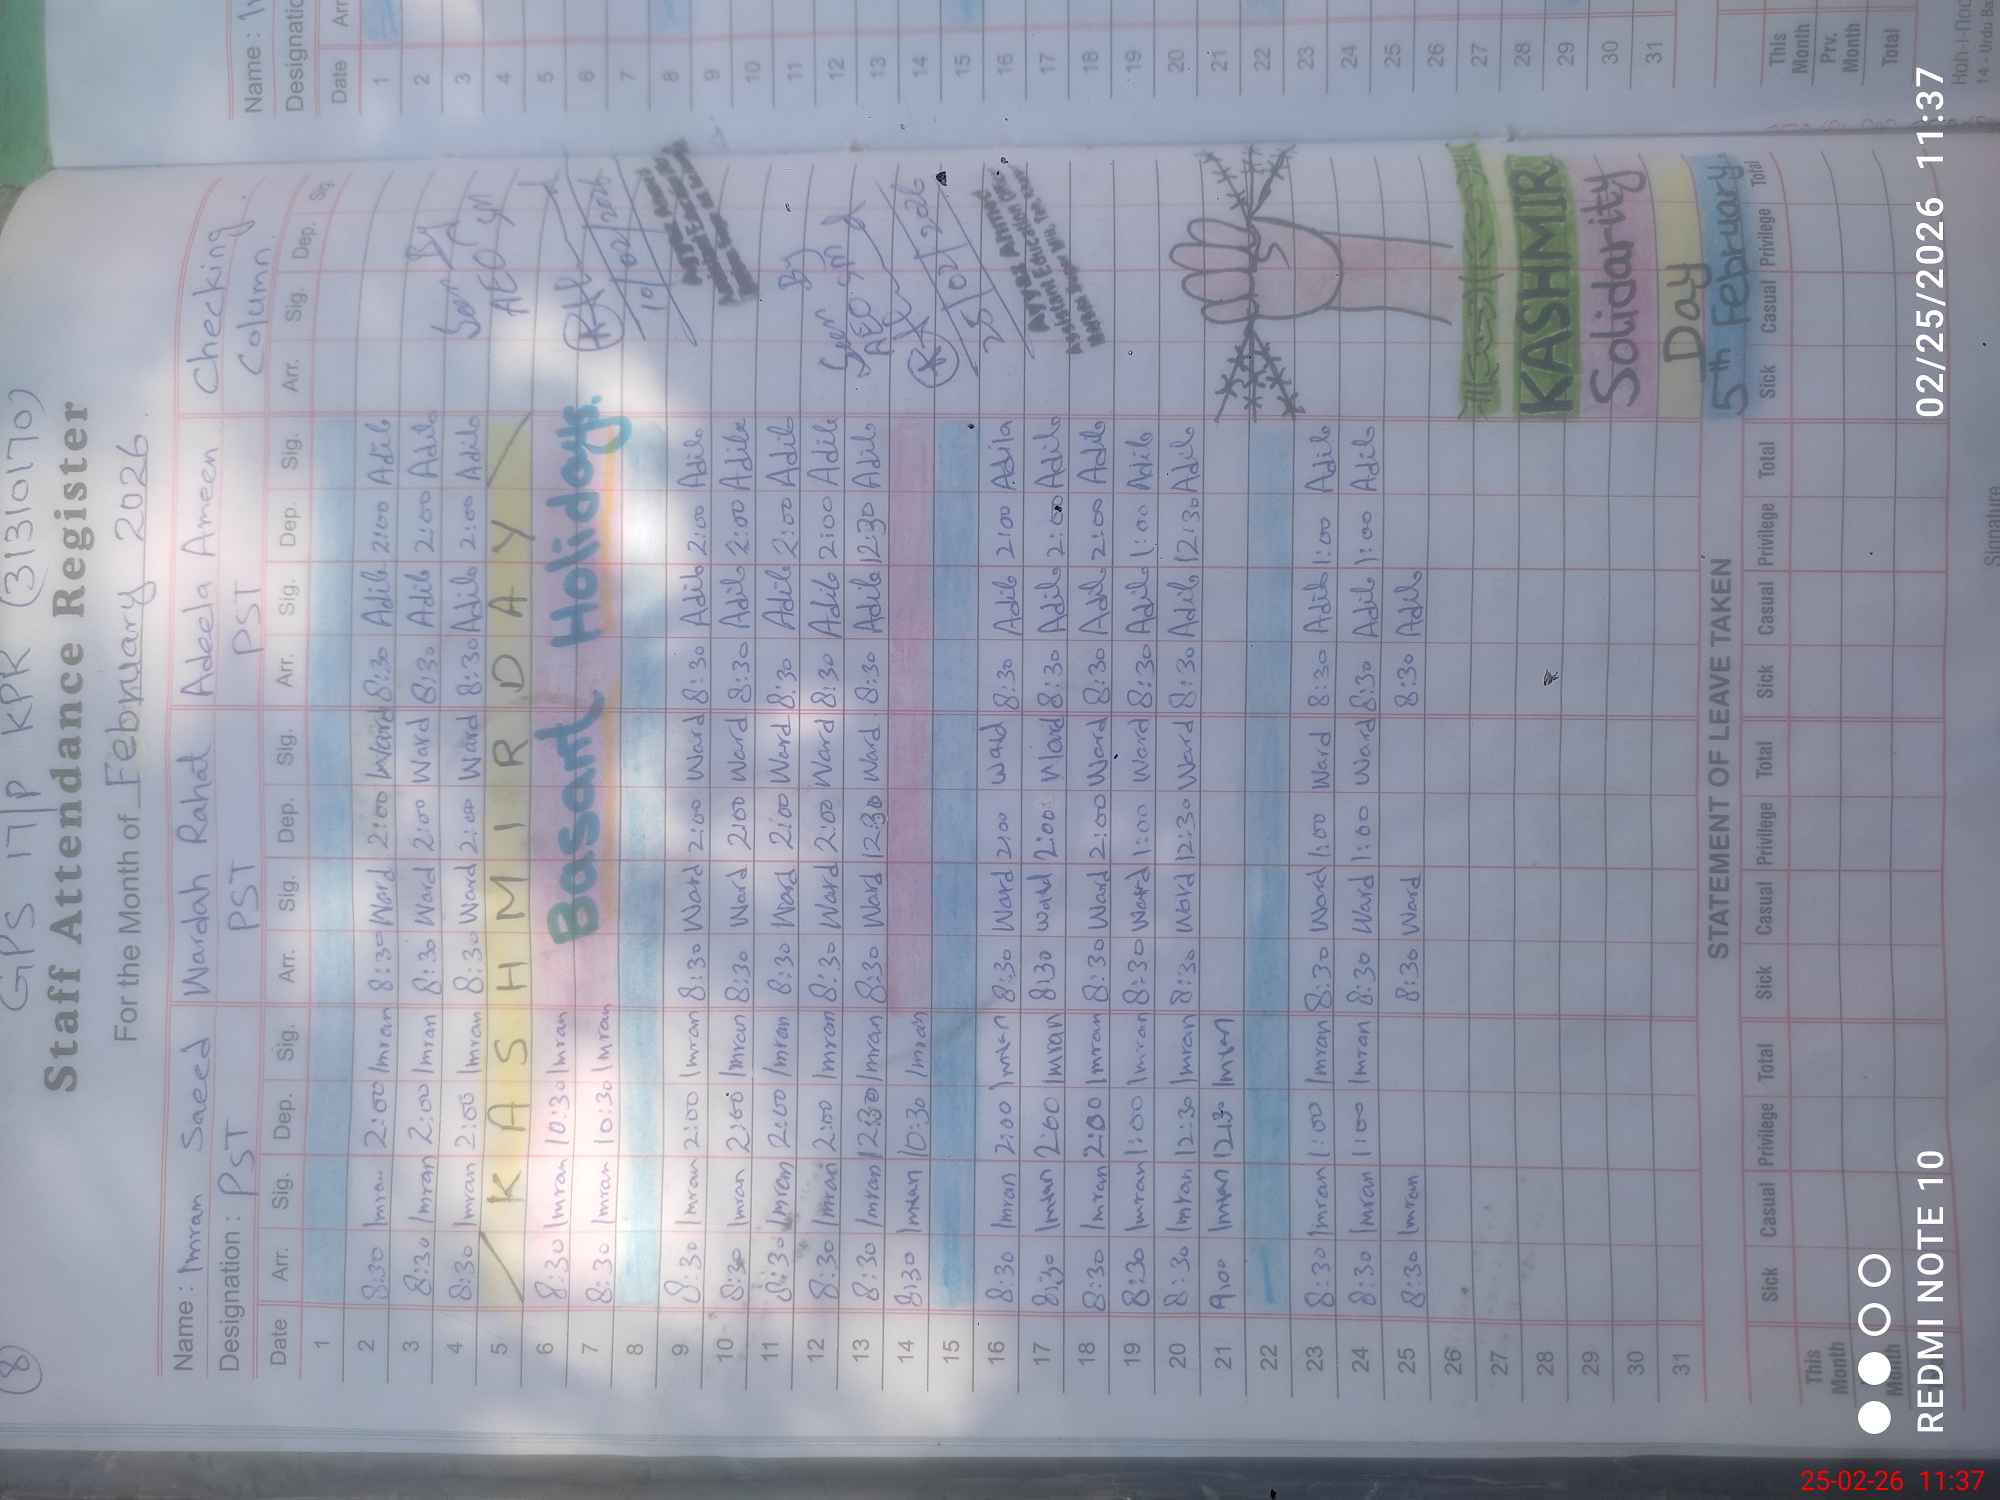 (8)
GPS 17/P KPR (31310170)
Staff Attendance Register
For the Month of February 2026
Name : Imran Saeed Wardah Rahat Adeela Ameen Checking
Designation : PST PST PST Column.
Date Arr. Sig. Dep. Sig. Arr. Sig. Dep. Sig. Arr. Sig. Dep. Sig. Arr. Sig. Dep. Sig.
1
2 8:30 Imran 2:00 Imran 8:30 Ward 2:00 Ward 8:30 Adila 2:00 Adila
3 8:30 Imran 2:00 Imran 8:30 Ward 2:00 Ward 8:30 Adila 2:00 Adila
4 8:30 Imran 2:00 Imran 8:30 Ward 2:00 Ward 8:30 Adila 2:00 Adila
5 KASHMIR DAY AEO
6 8:30 Imran 10:30 Imran Basant Holidays.
7 8:30 Imran 10:30 Imran 10/02/2026
8
9 8:30 Imran 2:00 Imran 8:30 Ward 2:00 Ward 8:30 Adila 2:00 Adila
10 8:30 Imran 2:00 Imran 8:30 Ward 2:00 Ward 8:30 Adila 2:00 Adila
11 8:30 Imran 2:00 Imran 8:30 Ward 2:00 Ward 8:30 Adila 2:00 Adila By
12 8:30 Imran 2:00 Imran 8:30 Ward 2:00 Ward 8:30 Adila 2:00 Adila
13 8:30 Imran 12:30 Imran 8:30 Ward 12:30 Ward 8:30 Adila 12:30 Adila AEO
14 8:30 Imran 10:30 Imran
15
16 8:30 Imran 2:00 Imran 8:30 Ward 2:00 Ward 8:30 Adila 2:00 Adila 25/02/2026
17 8:30 Imran 2:00 Imran 8:30 Ward 2:00 Ward 8:30 Adila 2:00 Adila Ayyaz Ahmad
18 8:30 Imran 2:00 Imran 8:30 Ward 2:00 Ward 8:30 Adila 2:00 Adila Assistant Education Officer
19 8:30 Imran 1:00 Imran 8:30 Ward 1:00 Ward 8:30 Adila 1:00 Adila
20 8:30 Imran 12:30 Imran 8:30 Ward 12:30 Ward 8:30 Adila 12:30 Adila
21 9:00 Imran 12:30 Imran
22
23 8:30 Imran 1:00 Imran 8:30 Ward 1:00 Ward 8:30 Adila 1:00 Adila
24 8:30 Imran 1:00 Imran 8:30 Ward 1:00 Ward 8:30 Adila 1:00 Adila
25 8:30 Imran 8:30 Ward 8:30 Adila
26
27
28 KASHMIR
29 Solidarity
30
31 Day
STATEMENT OF LEAVE TAKEN 5th February
Sick Casual Privilege Total Sick Casual Privilege Total Sick Casual Privilege Total Sick Casual Privilege Total
This Month
Month
Signature
Name :
Designation
Date Arr
1
2
3
4
5
6
7
8
9
10
11
12
13
14
15
16
17
18
19
20
21
22
23
24
25
26
27
28
29
30
31
This Month
Prv. Month
Total
14 - Urdu Ba
REDMI NOTE 10 02/25/2026 11:37
25-02-26 11:37